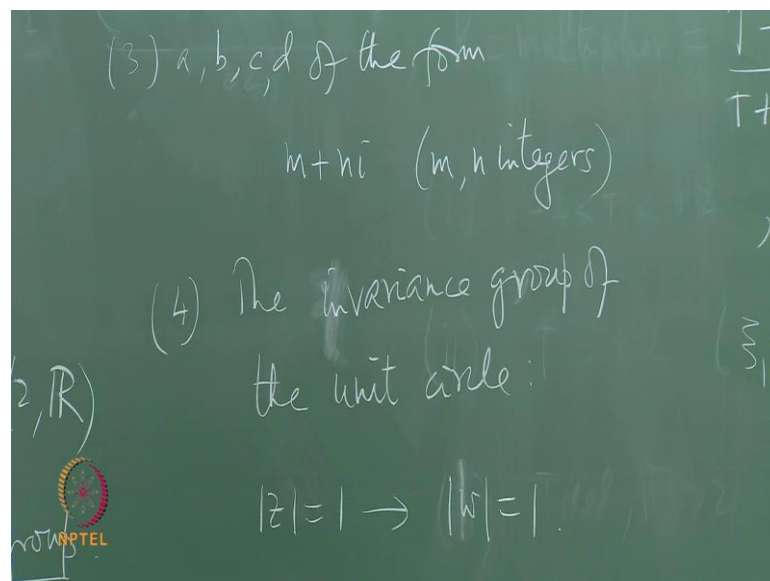 (3) a, b, c, d of the form
m+ni (m, n integers)
(4) The invariance group of
the unit circle:
|z|=1 → |w|=1.
2, R)
NPTEL